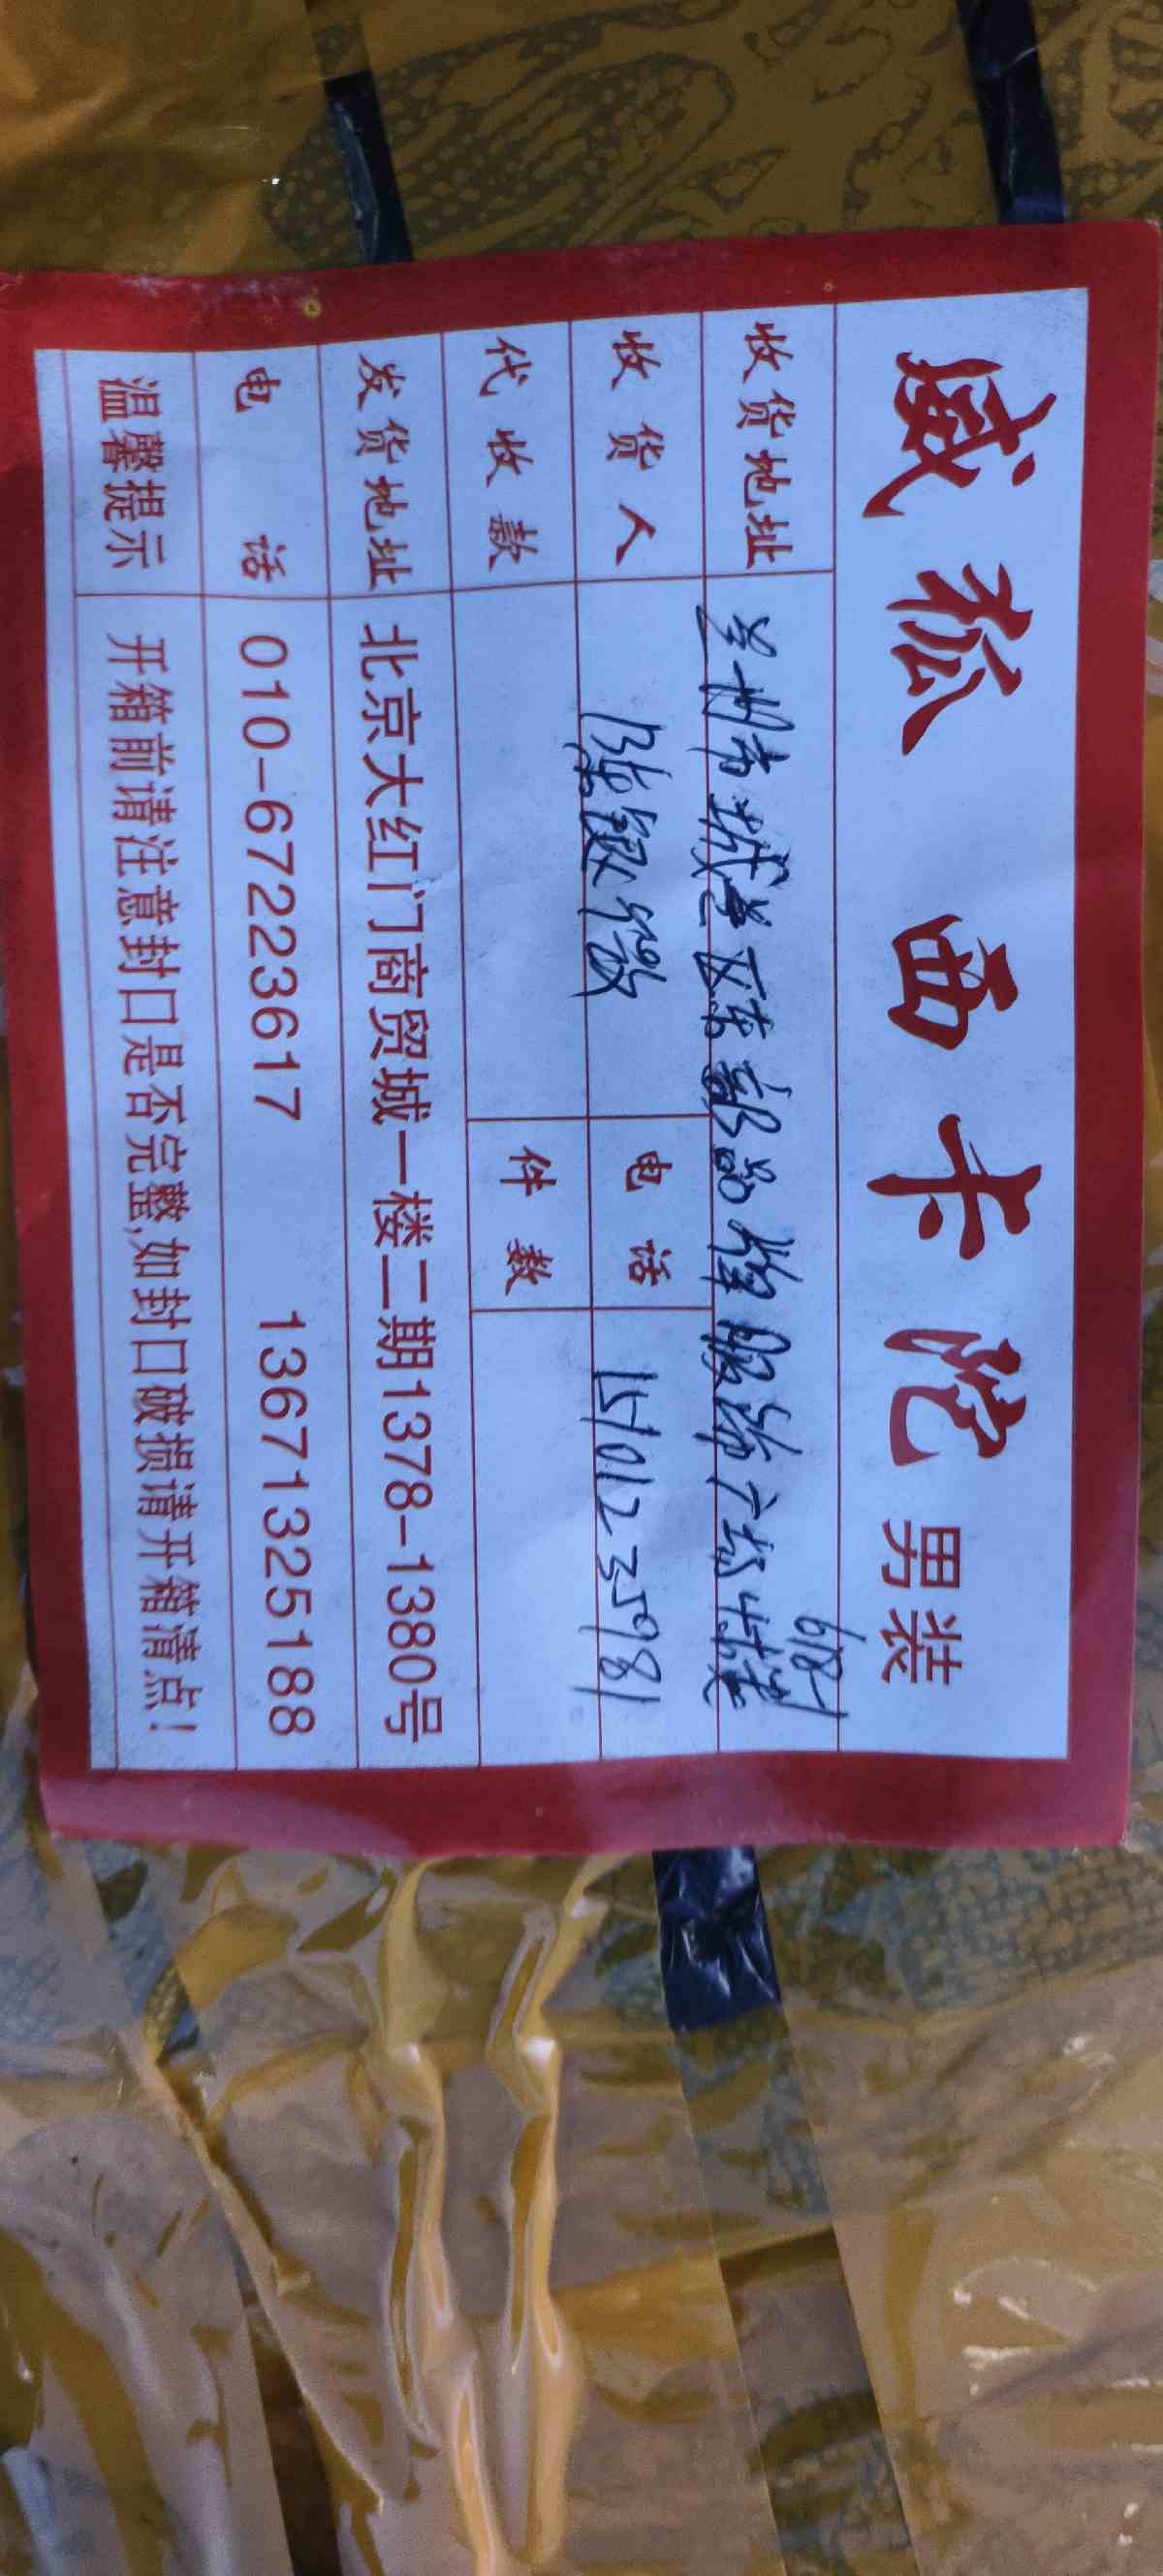 威狐 西卡陀 男装
收货地址 兰州市城关区东部品牌服饰广场七楼
618-1
收货人 张银 电话 15101235981
代收款 件数
发货地址 北京大红门商贸城一楼二期1378-1380号
电话 010-67223617 13671325188
温馨提示 开箱前请注意封口是否完整,如封口破损请开箱清点!